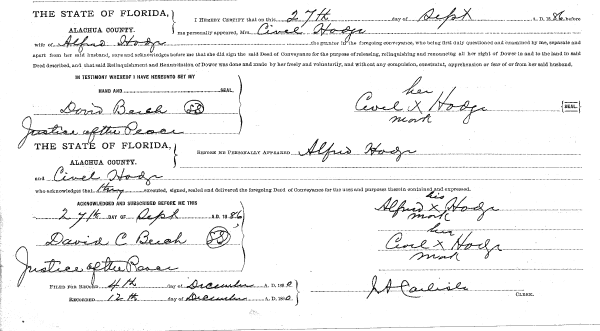 THE STATE OF FLORIDA,
ALACHUA COUNTY.
I HEREBY CERTIFY that on this 27th day of Sept A. D. 186, before
me personally appeared, Mrs. Civel Hodge
wife of Alfred Hodge the grantor in the foregoing conveyance, who being first duly questioned and examined by me, separate and
apart from her said husband, says and acknowledges before me that she did sign the said Deed of Conveyance for the purpose of releasing, relinquishing and renouncing all her right of Dower in and to the land in said
Deed described, and that said Relinquishment and Renunciation of Dower was done and made by her freely and voluntarily, and without any compulsion, constraint, apprehension or fear of or from her said husband.
IN TESTIMONY WHEREOF I HAVE HEREUNTO SET MY
HAND AND SEAL.
David Beich
Justice of the Peace
her
Civel X Hodge
mark
SEAL
THE STATE OF FLORIDA,
ALACHUA COUNTY.
BEFORE ME PERSONALLY APPEARED Alfred Hodge
and Civel Hodge
who acknowledges that they executed, signed, sealed and delivered the foregoing Deed of Conveyance for the uses and purposes therein contained and expressed.
ACKNOWLEDGED AND SUBSCRIBED BEFORE ME THIS
27th DAY OF Sept A. D. 186,
David C Beich
Justice of the Peace
his
Alfred X Hodge
mark
her
Civel X Hodge
mark
FILED FOR RECORD 4th day of December A. D. 18
RECORDED 12th day of December A. D. 18
Carlisle
CLERK.